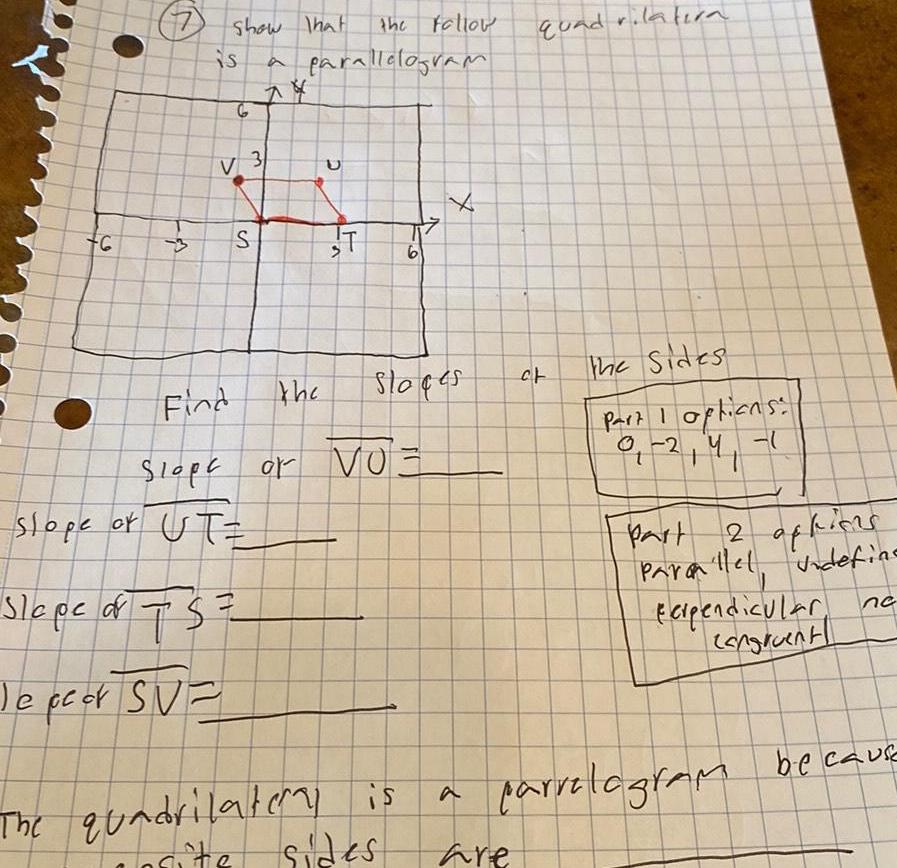 7 show that the follow quadrilatera
is a parallelogram
Y
6
V 3 U
X
-6 -3 S 3 T 6
Find the slopes of the Sides
Part 1 options:
0, -2, 4, -1
slope of VU = ____
slope of UT = ____
Part 2 options
parallel, undefin
perpendicular, no
congruent
Slope of TS = ____
lope of SV = ____
The quadrilateral is a parrelogram because
posite sides are ____